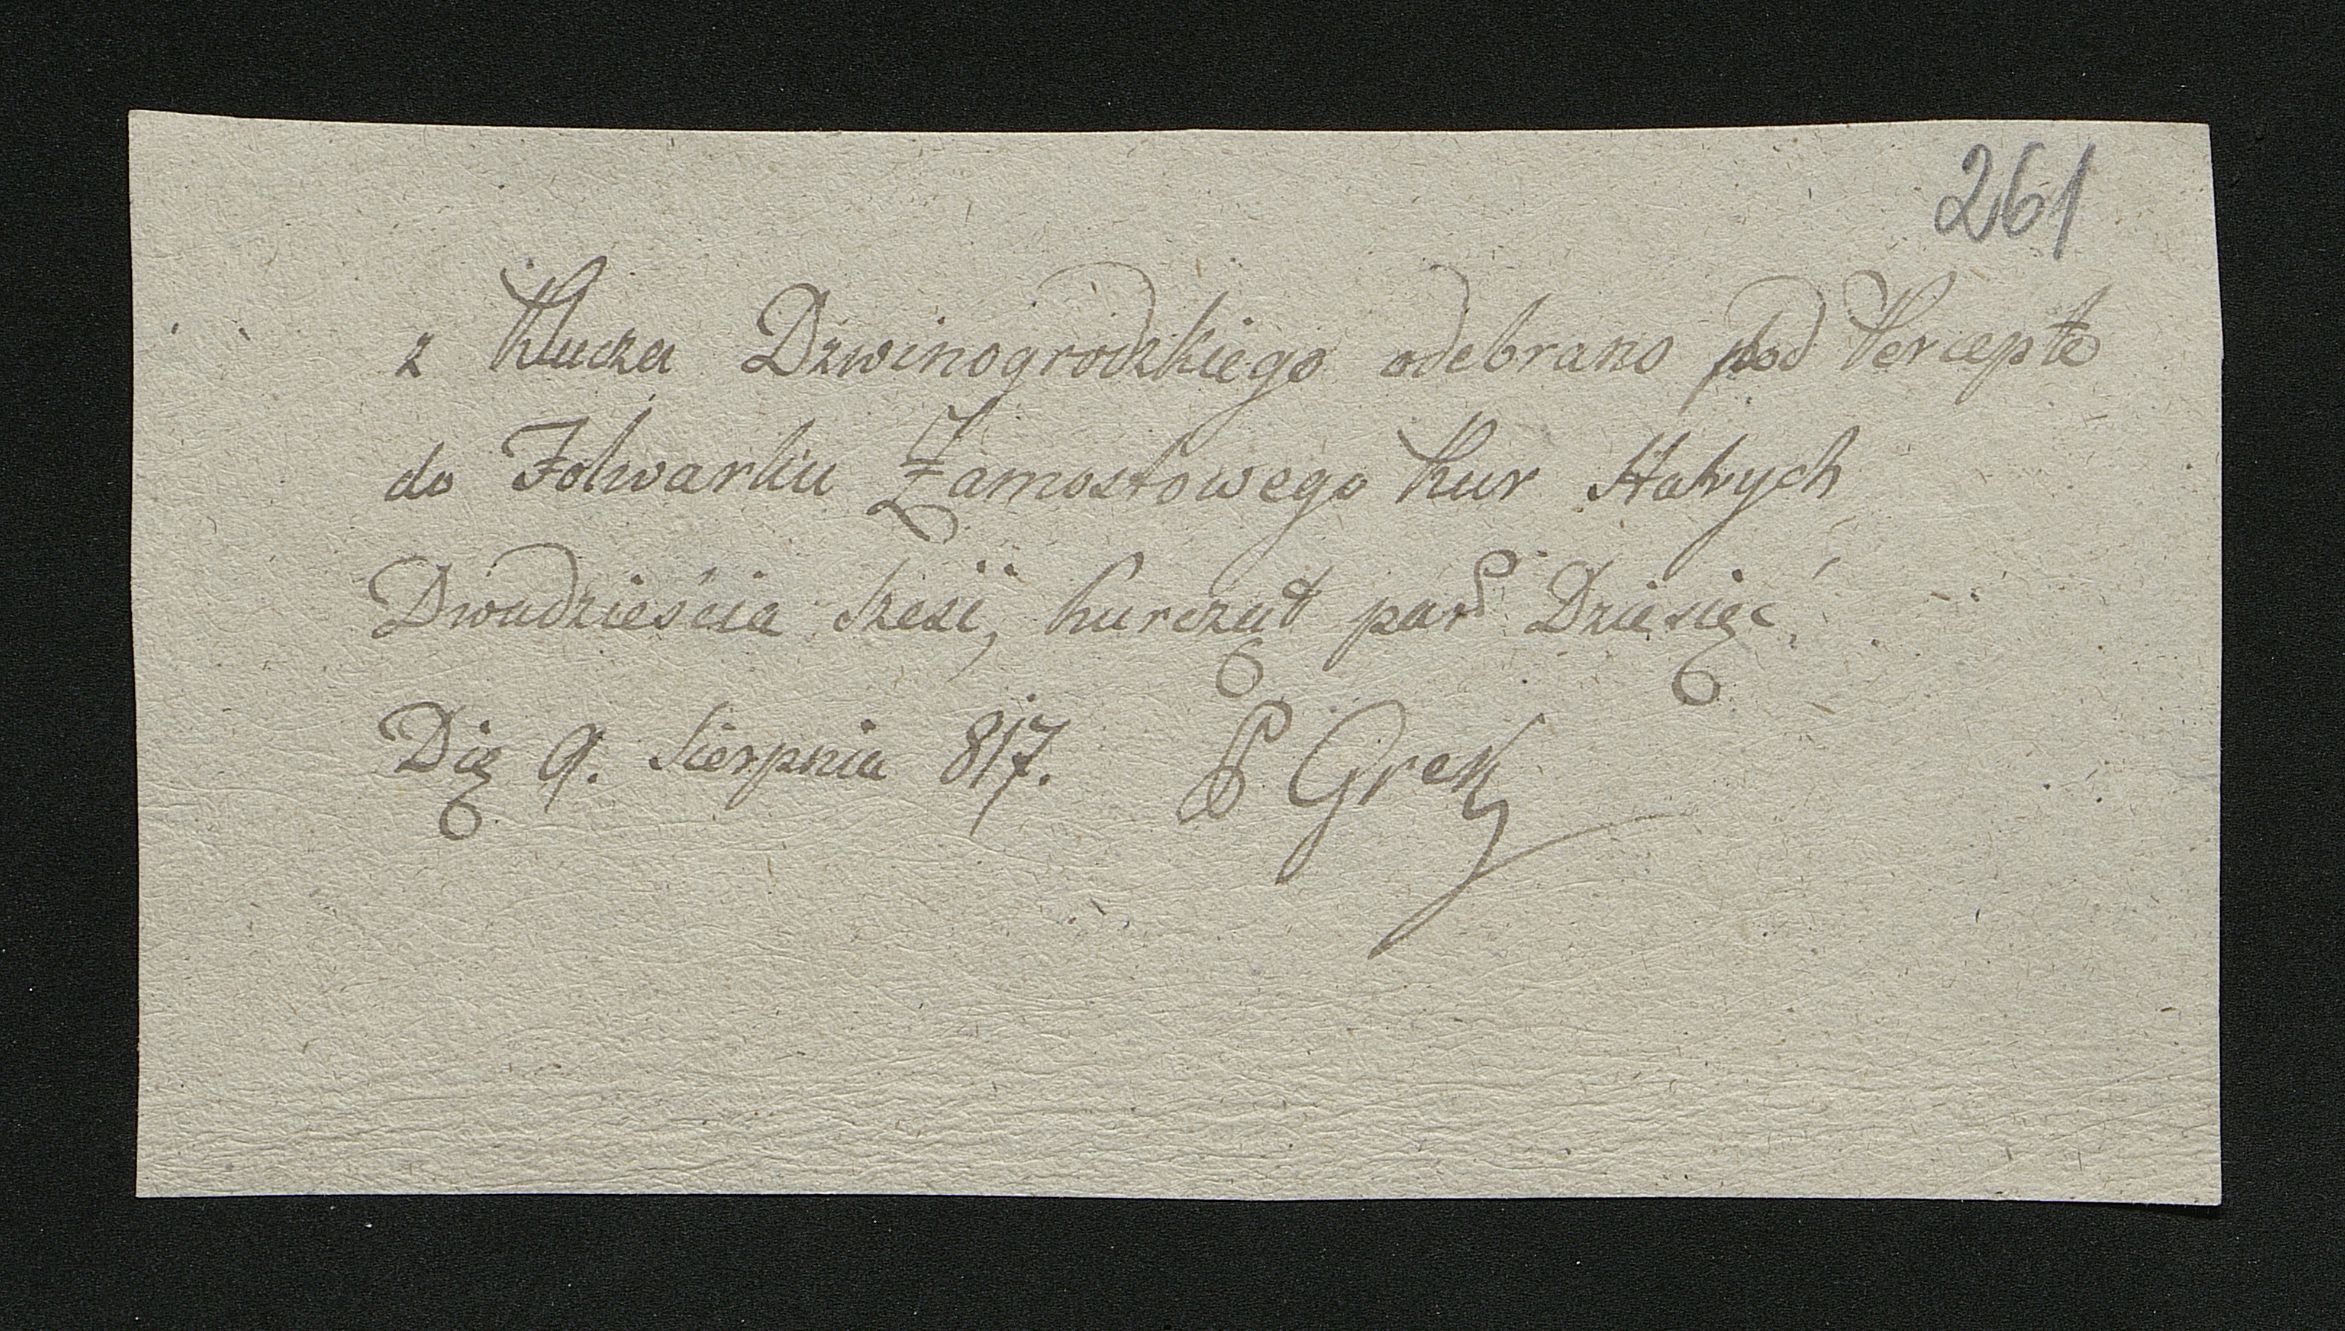 261
z Klucza Dzwinogrodzkiego odebrano pod Percepte
do Folwarku Zamostowego Kur Starych
Dwadzieścia Szesć, kurcząt par Dziesięć
Dię 9. Sierpnia 817. P Grek